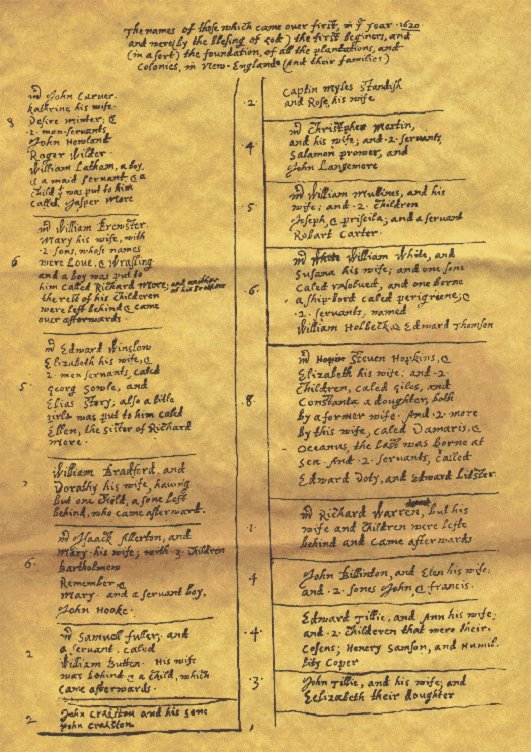 The names of those which came over first, in yͤ year 1620
and were (by the blesing of God) the first beginers, and
(in a sort) the foundation, of all the plantations, and
Colonies, in New-England (And their families)
8
mr John Carver.
kathrine his wife.
Desire minter, &
·2· man-servants
John Howland
Roger Wilder.
William Latham, a boy.
& a maid servant & a
Child yt was put to him
Called, Jasper More
6
mr William Brewster.
Mary his wife, with
·2· sons, whose names
were Love, & Wrasling.
and a boy was put to
him called Richard More; and another
of his brothers
the rest of his Childeren
were left behind & came
over afterwards.
5·
mr Edward Winslow
Elizabeth his wife, &
2 men servants, caled
Georg Sowle, and
Elias Story; also a litle
girle was put to him caled
Ellen, the sister of Richard
More.
2
William Bradford, and
Dorathy his wife, having
but one Child, a sone left
behind, who came afterward.
6·
mr Isaack Allerton, and
Mary his wife; with ·3· Children
Bartholmew
Remember &
Mary· and a servant boy,
John Hooke.
2
mr Samuell fuller; and
a servant, caled
William Butten. His wife
was behind & a Child, which
came afterwards.
2
John Crakston and his sone
John Crakston
·2·
Captin Myles Standish
and Rose, his wife
·4·
mr Christpher Martin,
and his wife; and ·2· servants,
Salamon prower, and
John Langemore
·5·
mr William Mullines, and his
wife; and ·2· Children
Joseph, & priscila; and a servant
Robart Carter.
·6·
mr William White, and
Susana his wife; and one sone
caled resolved, and one borne
a ship-bord caled perigriene; &
·2· servants, named
William Holbeck & Edward Thomson
·8·
mr Steven Hopkins, &
Elizabeth his wife; and ·2·
Children, caled Giles, and
Constanta a doughter, both
by a former wife. And ·2· more
by this wife, caled Damaris, &
Oceanus, the last was borne at
sea. And ·2· servants, called
Edward Doty, and Edward Litster.
·1·
mr Richard Warren, but his
wife and Children were lefte
behind and came afterwards
·4·
John Billinton, and Elen his wife:
and ·2· sones John & francis.
·4·
Edward Tillie, and Ann his wife;
and ·2· Childeren that were their
Cosens; Henery Samson, and Humil-
lity Coper
·3·
John Tillie, and his wife; and
Eelizabeth their doughter